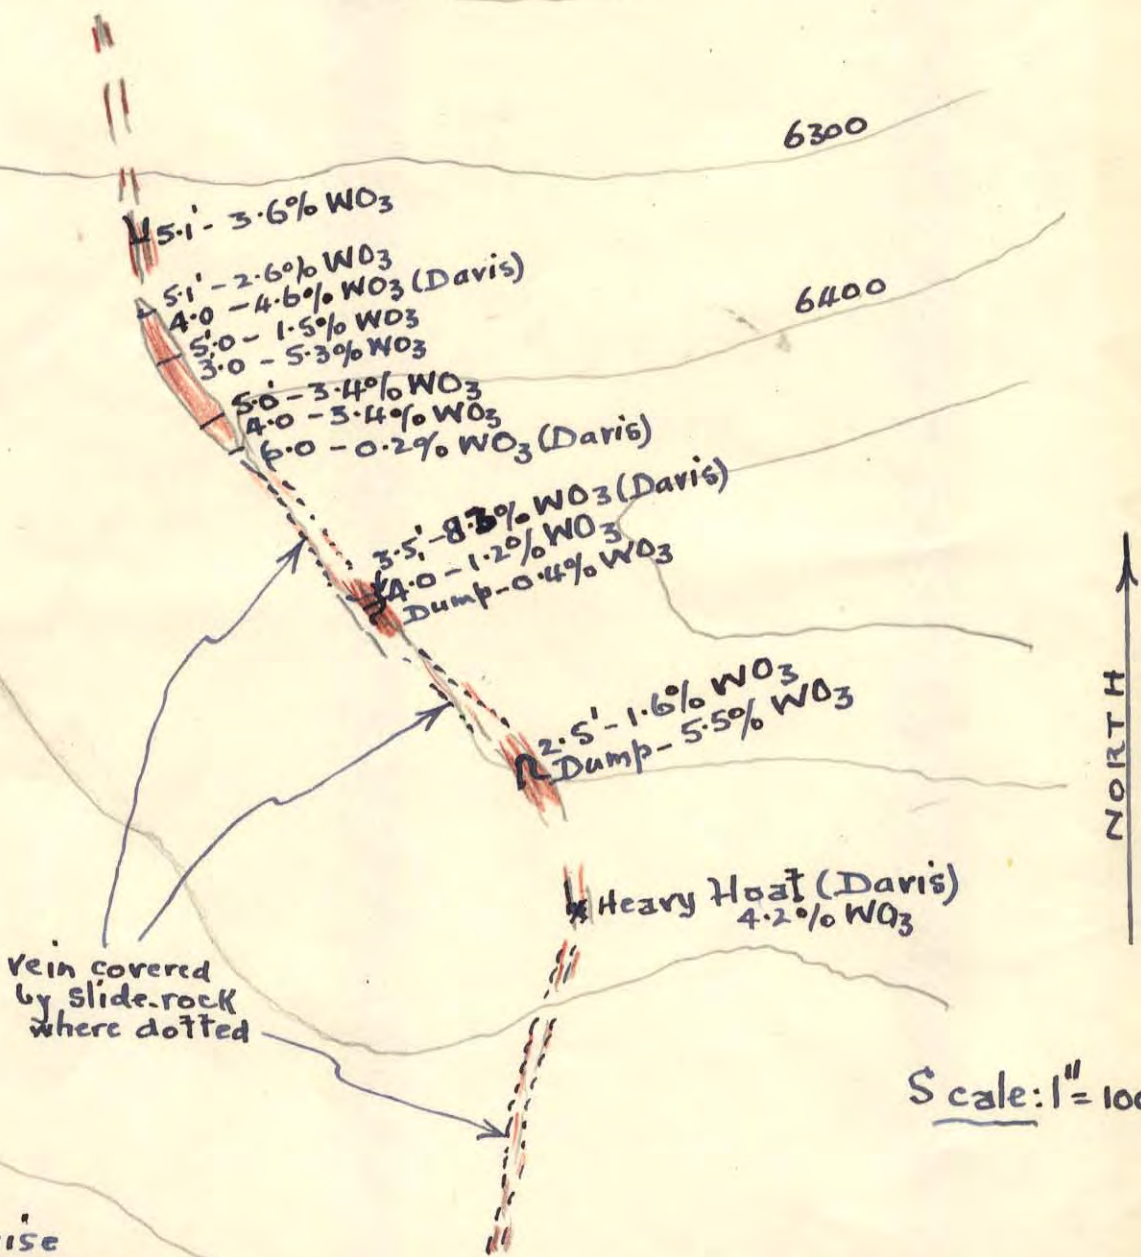 6300
5.1' - 3.6% WO3
5.1' - 2.6% WO3
4.0 - 4.6% WO3 (Davis)
5.0 - 1.5% WO3
3.0 - 5.3% WO3
6400
5.0' - 3.4% WO3
4.0 - 3.4% WO3
6.0 - 0.2% WO3 (Davis)
3.5' - % WO3 (Davis)
4.0 - 1.2% WO3
Dump - 0.4% WO3
2.5' - 1.6% WO3
Dump - 5.5% WO3
NORTH
Heavy Float (Davis)
4.2% WO3
vein covered
by slide-rock
where dotted
Scale: 1" = 100